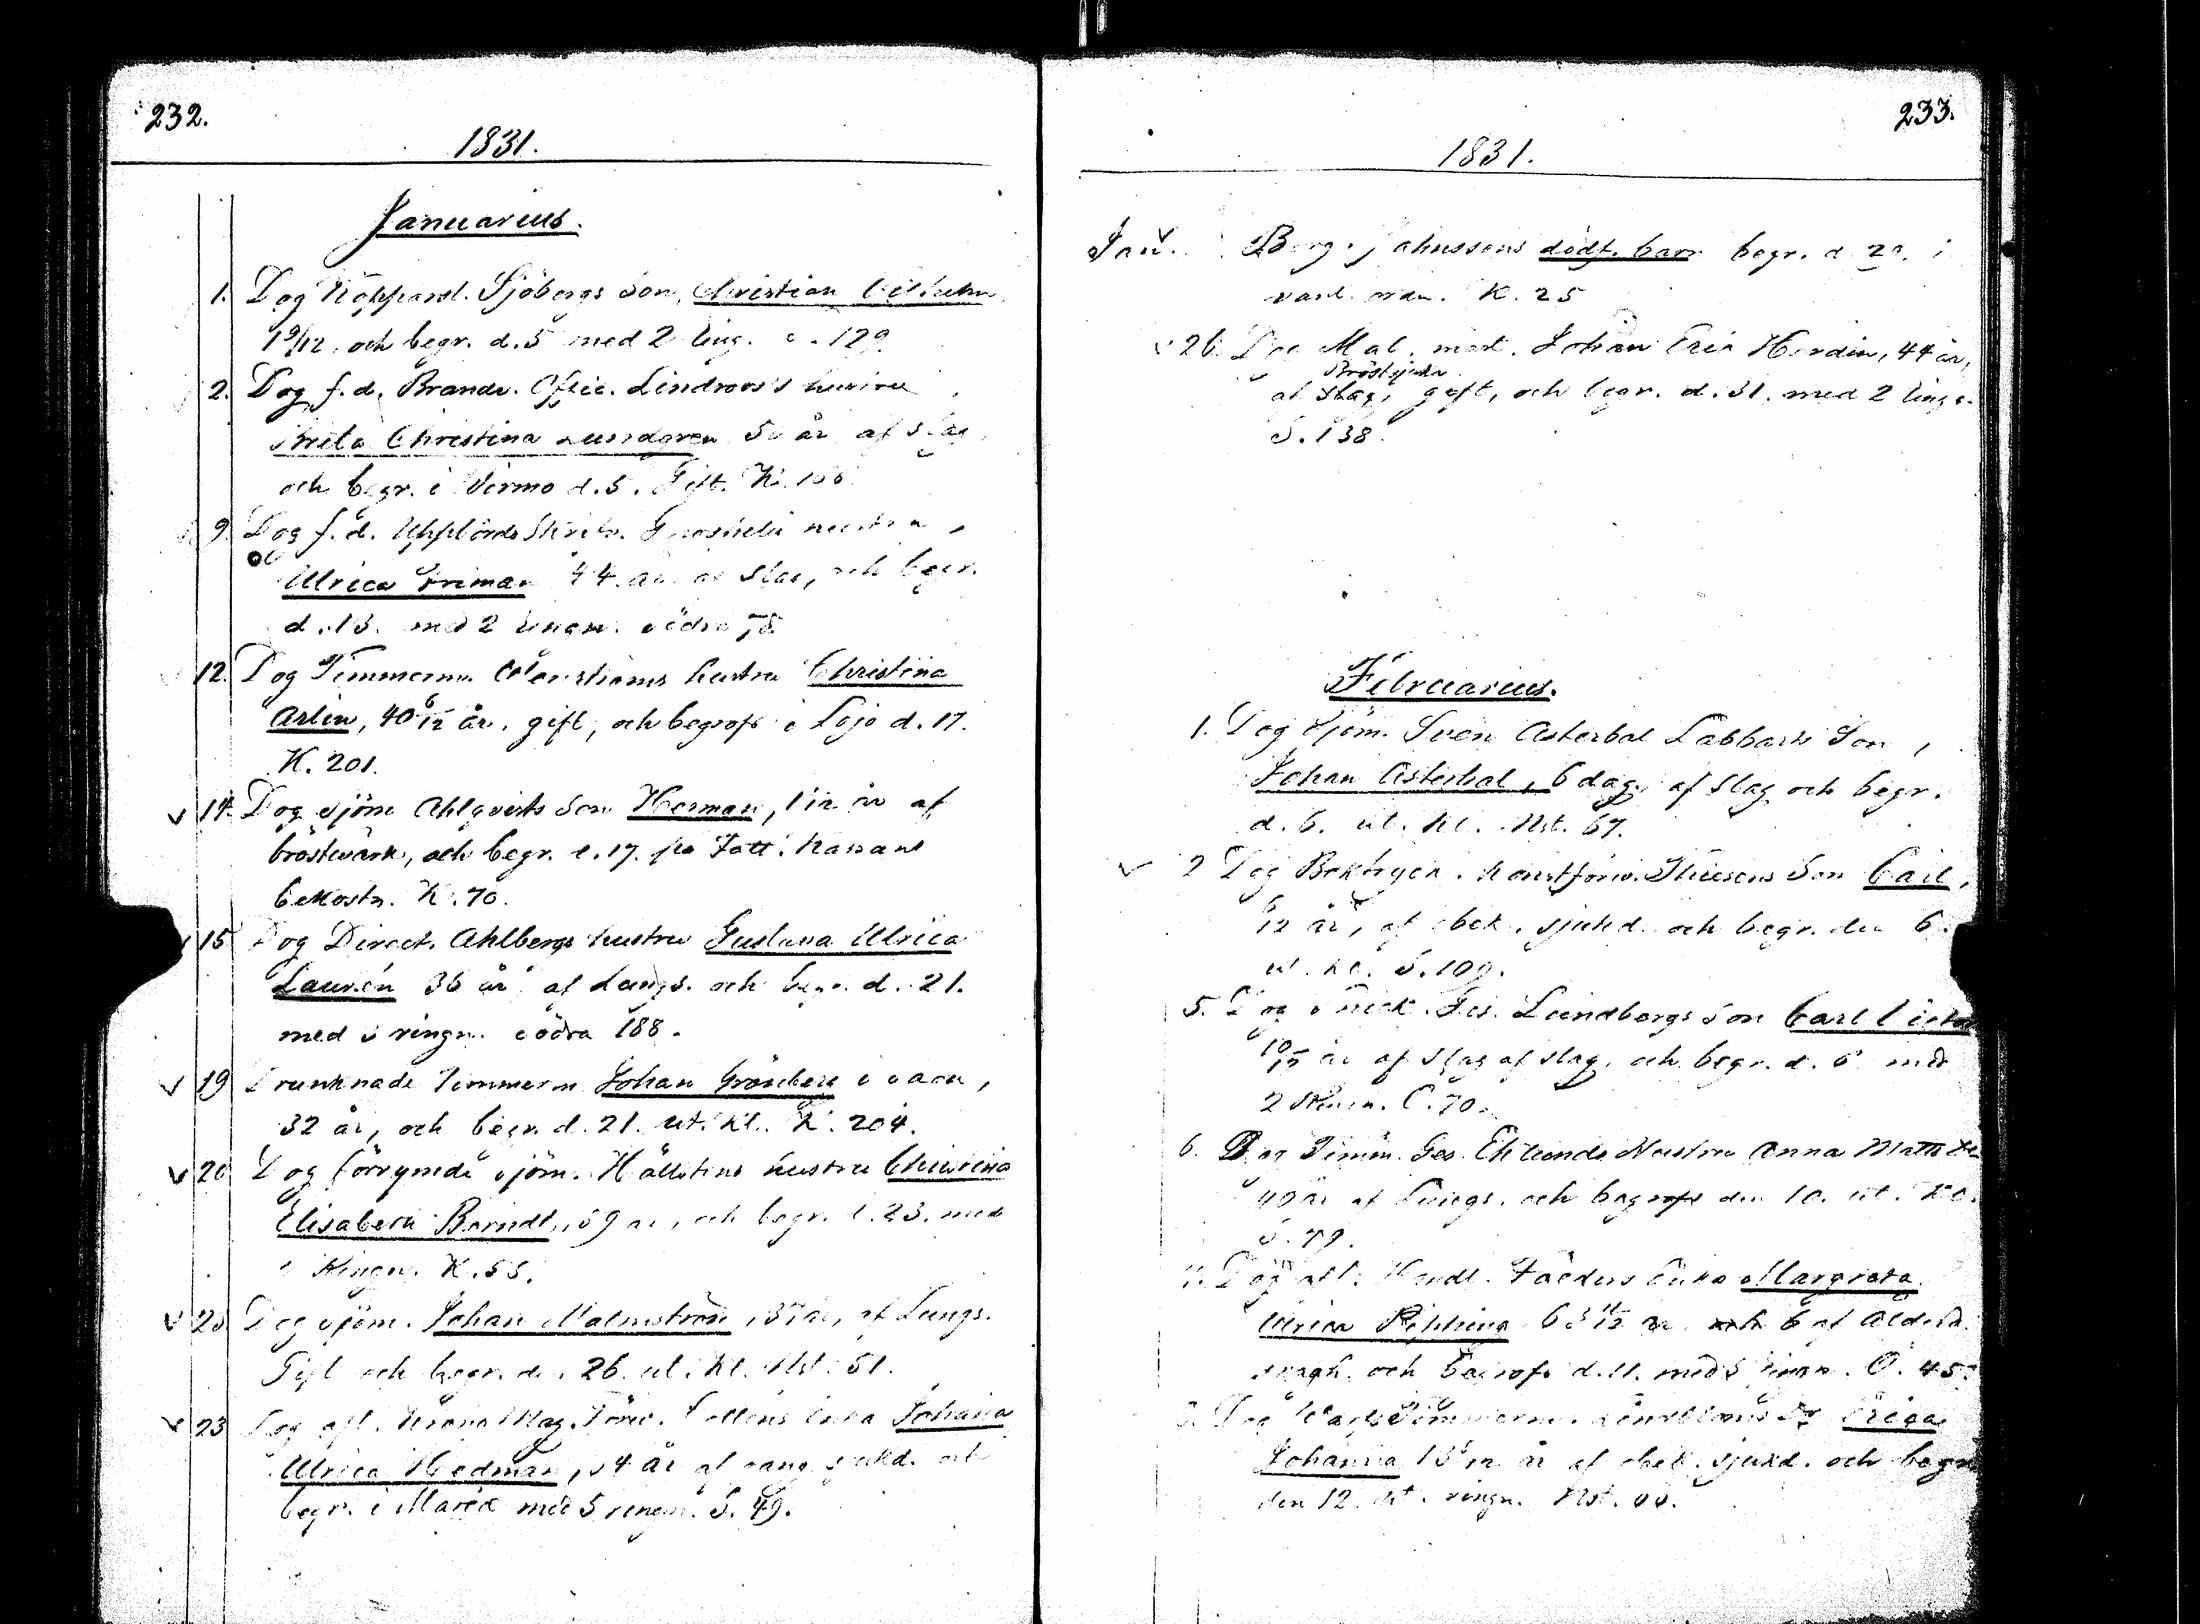 232.
1831.
Januarius.
1. Dog Kopparsl. Sjöbergs Son, Christian Vilhelm
1 9/12, och begr. d. 5 med 2 ling. 129.
2. Dog f. d. Brandv. Offic. Lindroos's hustru
Brita Christina Lundgren 50 år af slag
och begr. i Virmo d. 5. Gift. K. 108
9. Dog f. d. Uppbörds Skrifv. hustru,
Ulrica Friman 44 år af slag, och begr.
d. 13. med 2 ringn. södra 78
12. Dog Timmerm. hustru Christina
Arlin, 40 6/12 år. gift, och begrofs i Lojo d. 17.
K. 201.
14. Dog sjöm Ahlqvists Son Herman, 1 /12 år af
bröstvärk, och begr. d. 17. på Fatt. kassans
bekostn. K. 70.
15 Dog Direct. Ahlbergs hustru Gustava Ulrica
Laurén 36 år af Lungs. och begr. d. 21.
med 3 ringn. södra 188.
19 Drunknade Timmerm Johan Grönberg i vaken,
32 år, och begr. d. 21. ut. kl. K. 204.
20 Dog förrymde sjöm. Hällstens hustru Christina
Elisabeth Berndt, 59 år, och begr. d. 23. med
Ringn. K. 55.
23 Dog sjöm. Johan Malmström, 37 år, af Lungs.
Gift och begr. d. 26. ut. kl. Nst. 51.
23 Dog afl. Krono Mag. Förv. enka Johana
Ulrica Hedman, 54 år af sjukd. och
begr. i Maria med 5 ringn. S. 49.
233.
1831.
Jan. Borg. Johnssons dödf. barn begr. d 20. i
vanl. ordn. K. 25
26. Dog Mål. mäst. Johan Eric Hordin, 44 år,
Bröstsjukd.
af slag, gift, och begr. d. 31. med 2
S. 138.
Februarius.
1. Dog Sjöm. Sven Asterbal Labbarts Son,
Johan Asterbal, 6 dag. af slag och begr.
d. 6. ut. kl. Nst. 67.
2 Dog Boktryck. konstförv. Thuesens Son Carl,
6/12 år, af obek. sjukd. och begr. den 6.
ut. kl. S. 109.
5. Dog Snick. Ges. Lundbergs Son Carl Victor
10/12 år af slag af slag, och begr. d. 6 med
2 Ringn. O. 70.
6. Dog Timm. Ges. Ehlunds Hustru Anna Matts
40 år af Lungs. och begrofs den 10. ut. kl.
S. 79.
Dog afl. Handl. Enka Margreta
Ulrica Kipping 63 11/12 år och 6 af Ålderd.
svagh. och begrofs d. 11. med ringn. O. 45.
Dog Timmerm. Lindbloms Erica
Johanna 13 /12 år af obek. sjukd. och begr
den 12. ut. ringn. Nst.